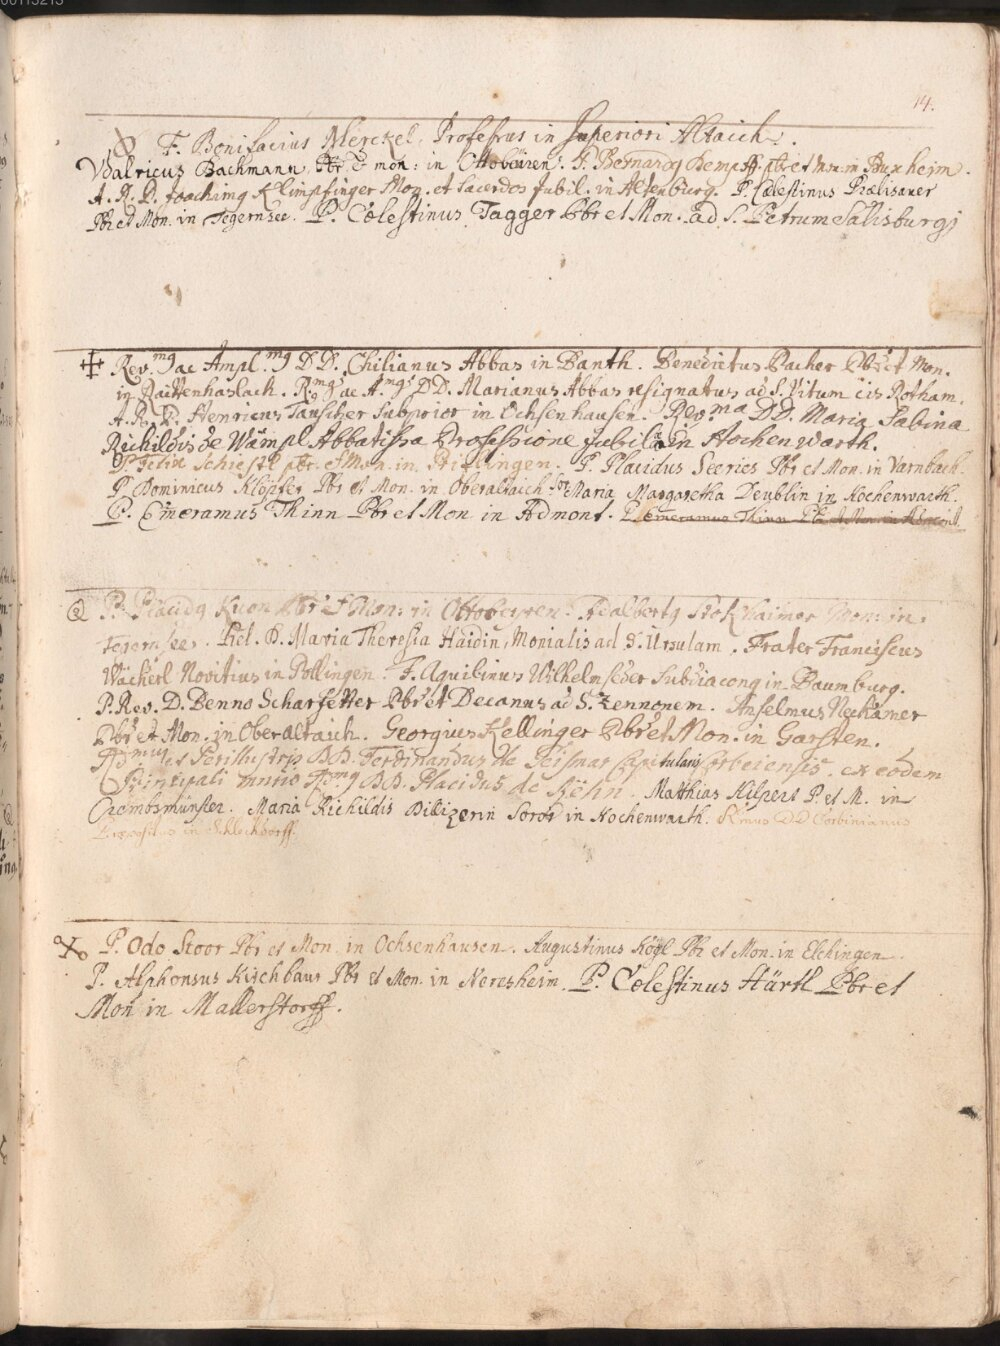 14.
F. Bonifacius Merckel, Professus in Superiori Altaich.
Udalricus Bachmann Pbr. & mon: in Ottobeüren. P. Bernardg Dempff pbr et Mon. in Buxheim.
A. R. P. Joachimg Klimpfinger Mon. et Sacerdos Jubil. in Altenburg. P. Cœlestinus Prælisauer
Pbr et Mon. in Tegernsee. P. Cœlestinus Tagger Pbr et Mon. ad S. Petrum Salisburgi
Rev.mg ac Ampl.mg DD. Chilianus Abbas in Banth. Benedictus Pacher Pbr et Mon.
in Raittenhaslach. R.mg ac A.mg DD. Marianus Abbas resignatus ad S. Vitum cis Rotham.
A. R. P. Henricus Tauscher Subprior in Ochsenhausen. Rev.ma DD. Maria Sabina
Richildis de Wämpl Abbatissa Professione Jubila in Hochenwarth.
P. Felix Schiestl pbr. et Mon. in Priflingen. P. Placidus Seeries Pbr et Mon. in Varnbach.
P. Dominicus Klöpfer Pbr et Mon. in Oberaltaich. Sor Maria Margaretha Deublin in Hochenwarth.
P. Emeramus Thinn Pbr et Mon in Admont. P. Emeramus Thinn Pbr et Mon in Admont.
P. Placidg Kuon Pbr & Mon: in Ottobeyren. Adalbertg Mon: in
Tegernsee. Rel. D. Maria Theresia Haidin, Monialis ad S. Ursulam. Frater Franciscus
Wächerl Novitius in Pollingen. F. Aquilinus Wilhelmseder Subdiacong in Baumburg.
P. Rev. D. Benno Scharfetter Pbr et Decanus ad S. Zennonem. Anselmus Neckamer
Pbr et Mon. in Oberaltaich. Georgius Kellinger Pbr et Mon. in Garsten.
Rmus et Perillustris DD. Ferdinandus de Capitularis Corbeiensis. ex eodem
Principali DD. Placidus de Matthias Hilpert P. et M. in
Crembsmünster. Maria Richildis Soror in Hochenwarth. Rmus DD Corbinianus
Præpositus in Schlechdorff.
P. Odo Stoor Pbr et Mon. in Ochsenhausen. Augustinus Kögl Pbr et Mon. in Elchingen.
P. Alphonsus Kirchbaur Pbr et Mon. in Neresheim. P. Cœlestinus Härtl Pbr et
Mon in Mallerstorff.